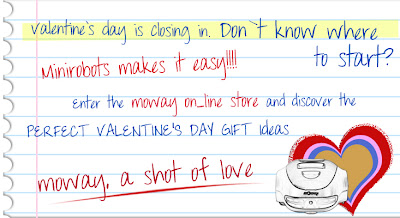 valentine's day is closing in. Don't know where
to start?
Minirobots makes it easy!!!!
Enter the moway on_line store and discover the
PERFECT VALENTINE'S DAY GIFT ideas
moway, a shot of love